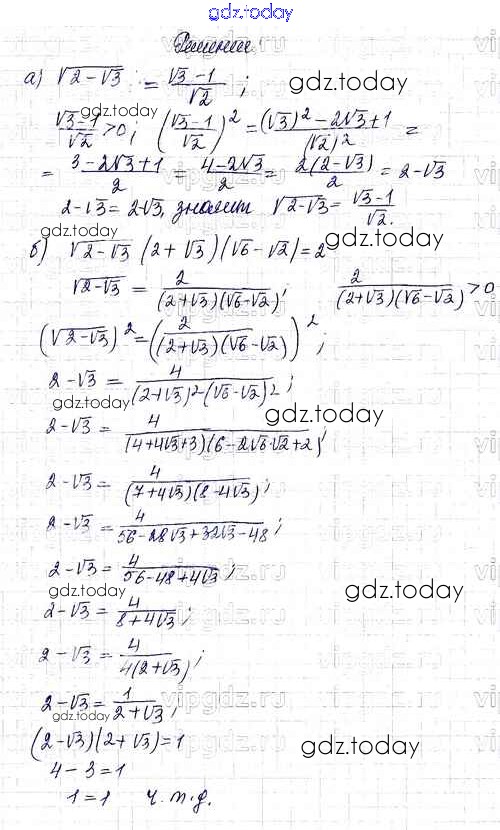 gdz.today
Решение.
а) √2-√3 = √3-1/√2 ; gdz.today
√3-1/√2 > 0; (√3-1/√2)² = (√3)²-2√3+1/(√2)² =
= 3-2√3+1/2 = 4-2√3/2 = 2(2-√3)/2 = 2-√3
2-√3 = 2-√3, значит √2-√3 = √3-1/√2.
б) √2-√3 (2+√3)(√6-√2) = 2
gdz.today
√2-√3 = 2/(2+√3)(√6-√2); 2/(2+√3)(√6-√2) > 0
(√2-√3)² = (2/(2+√3)(√6-√2))²;
2-√3 = 4/(2+√3)²(√6-√2)²;
gdz.today
2-√3 = 4/(4+4√3+3)(6-2√6√2+2);
2-√3 = 4/(7+4√3)(8-4√3);
2-√3 = 4/56-28√3+32√3-48;
2-√3 = 4/56-48+4√3;
gdz.today gdz.today
2-√3 = 4/8+4√3;
2-√3 = 4/4(2+√3);
2-√3 = 1/2+√3;
gdz.today
(2-√3)(2+√3) = 1
gdz.today
4-3 = 1
1 = 1 ч.т.д.
gdz.today